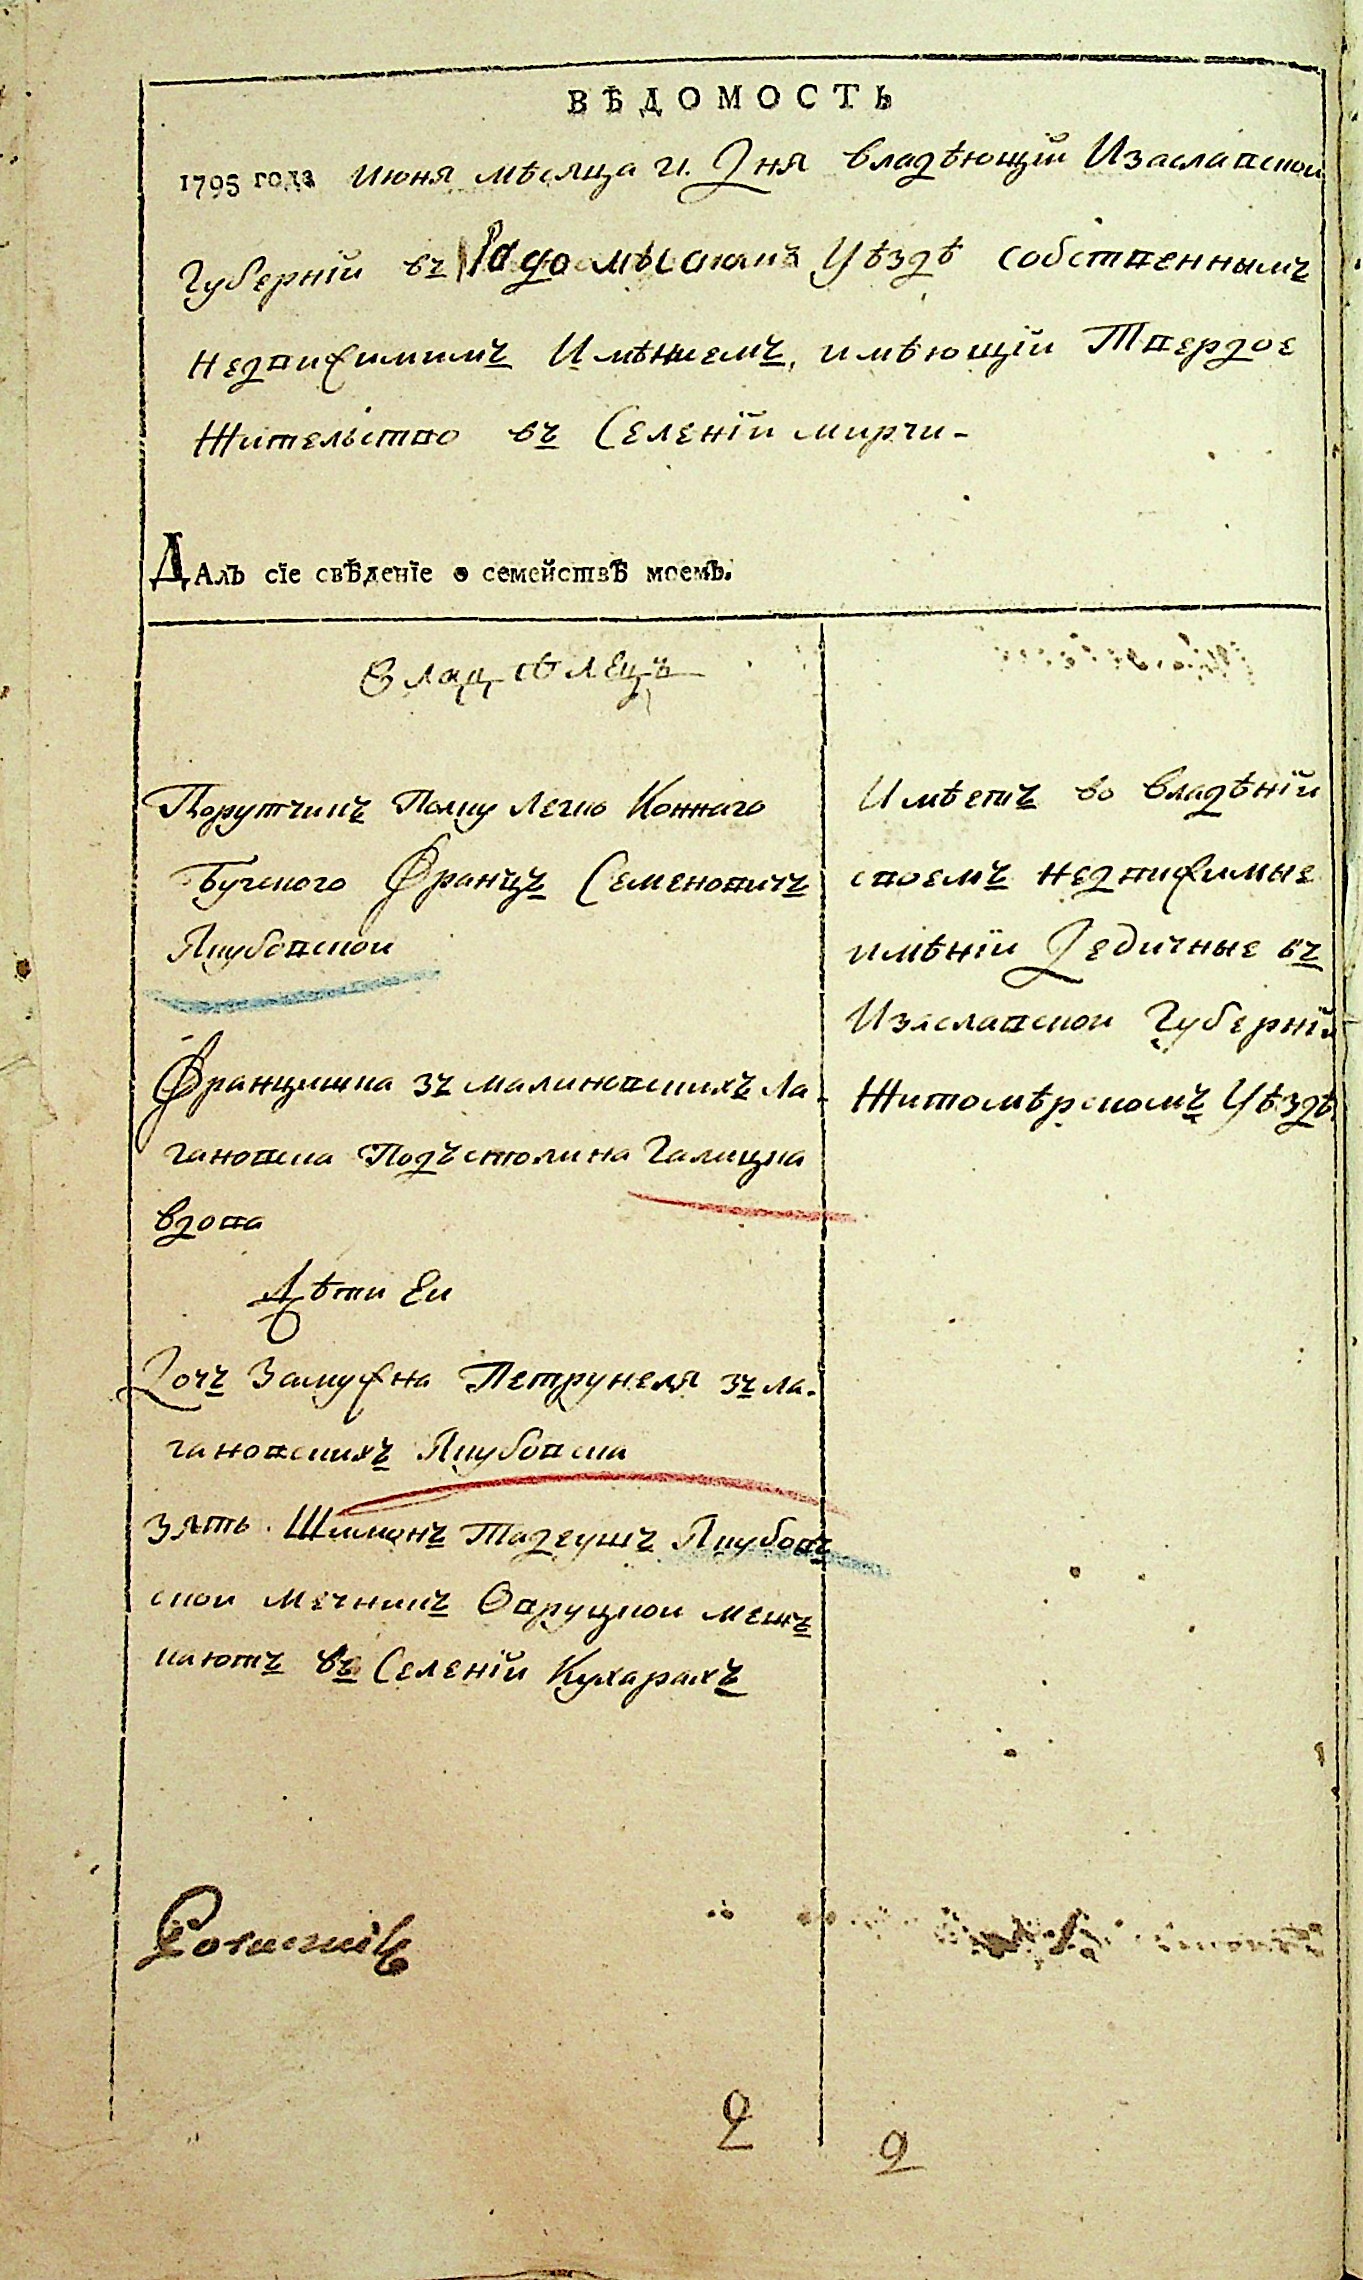 ВѢДОМОСТЬ
1795 года Июня мѣсяца 21. Дня владѣющїи Изаславской
Губернїи въ Радомысльскомъ Уѣздѣ собственнымъ
недвижимимъ Имѣниемъ, имѣющїи Твердое
Жительство въ Селенїи мирчи-
Далъ сїе свѣденїе о семействѣ моемъ.
Владѣлецъ
Порутчикъ Полку Легко Коннаго
Бугского Францъ Семеновичъ
Якубовской
Францишка зъ малиновскихъ Ла-
гановска Подъстолина Галицка
вдова
Дѣти Еи
Дочъ Замужна Петрунеля зъ ла-
гановскихъ Якубовска
зять Шимонъ Тадеушъ Якубовъ
ской мечникъ Овруцкои мешъ
каютъ въ Селенїи Кухарахъ
Имѣетъ во владѣнїи
своемъ недвижимые
имѣнїи Дедичные въ
Изаславскои Губернїи
Житомѣрскомъ Уѣздѣ
2
2